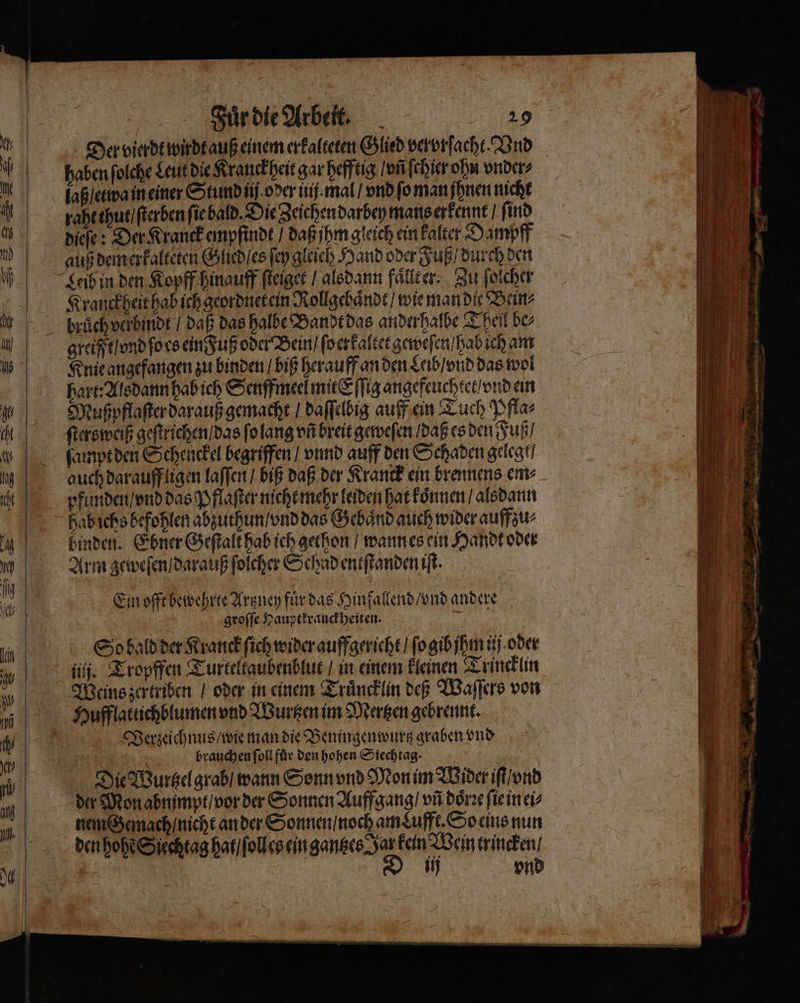 Für die Arbeit. 29
Der vierdt wirdt auß einem erkalteten Glied vervrsacht. Vnd
haben solche Leut die Kranckheit gar hefftig / vñ schier ohn vnder⸗
laß / etwa in einer Stund iij. oder iiij. mal / vnd so man jhnen nicht
raht thut / sterben sie bald. Die Zeichen darbey mans erkennt / sind
diese: Der Kranck empfindt / daß jhm gleich ein kalter Dampff
auß dem erkalteten Glied / es sey gleich Hand oder Fuß / durch den
Leib in den Kopff hinauff steiget / alsdann fällt er. Zu solcher
Kranckheit hab ich geordnet ein Rollgebändt / wie man die Bein⸗
brüch verbindt / daß das halbe Bandt das anderhalbe Theil be⸗
greifft / vnd so es ein Fuß oder Bein / so erkaltet gewesen / hab ich am
Knie angefangen zu binden / biß herauff an den Leib / vnd das wol
hart: Alsdann hab ich Senffmeel mit Essig angefeuchtet / vnd ein
Mußpflaster darauß gemacht / dasselbig auff ein Tuch Pfla⸗
stersweiß gestrichen / das so lang vñ breit gewesen / daß es den Fuß /
sampt den Schenckel begriffen / vnnd auff den Schaden gelegt /
auch darauff ligen lassen / biß daß der Kranck ein brennens em⸗
pfunden / vnd das Pflaster nicht mehr leiden hat können / alsdann
hab ichs befohlen abzuthun / vnd das Gebänd auch wider auffzu⸗
binden. Ebner Gestalt hab ich gethon / wann es ein Handt oder
Arm gewesen / darauß solcher Schad entstanden ist.
Ein offt bewehrte Artzney für das Hinfallend / vnd andere
grosse Hauptkranckheiten.
So bald der Kranck sich wider auffgericht / so gib jhm iij. oder
iiij. Tropffen Turteltaubenblut / in einem kleinen Trincklin
Weins zertriben / oder in einem Trüncklin deß Wassers von
Hufflattichblumen vnd Wurtzen im Mertzen gebrennt.
Verzeichnus / wie man die Beningenwurtz graben vnd
brauchen soll für den hohen Siechtag.
Die Wurtzel grab / wann Sonn vnd Mon im Wider ist / vnd
der Mon abnimpt / vor der Sonnen Auffgang / vñ dörꝛe sie in ei⸗
nem Gemach / nicht an der Sonnen / noch am Lufft. So eins nun
den hohẽ Siechtag hat / soll es ein gantzes Jar kein Wein trincken /
D iij vnd